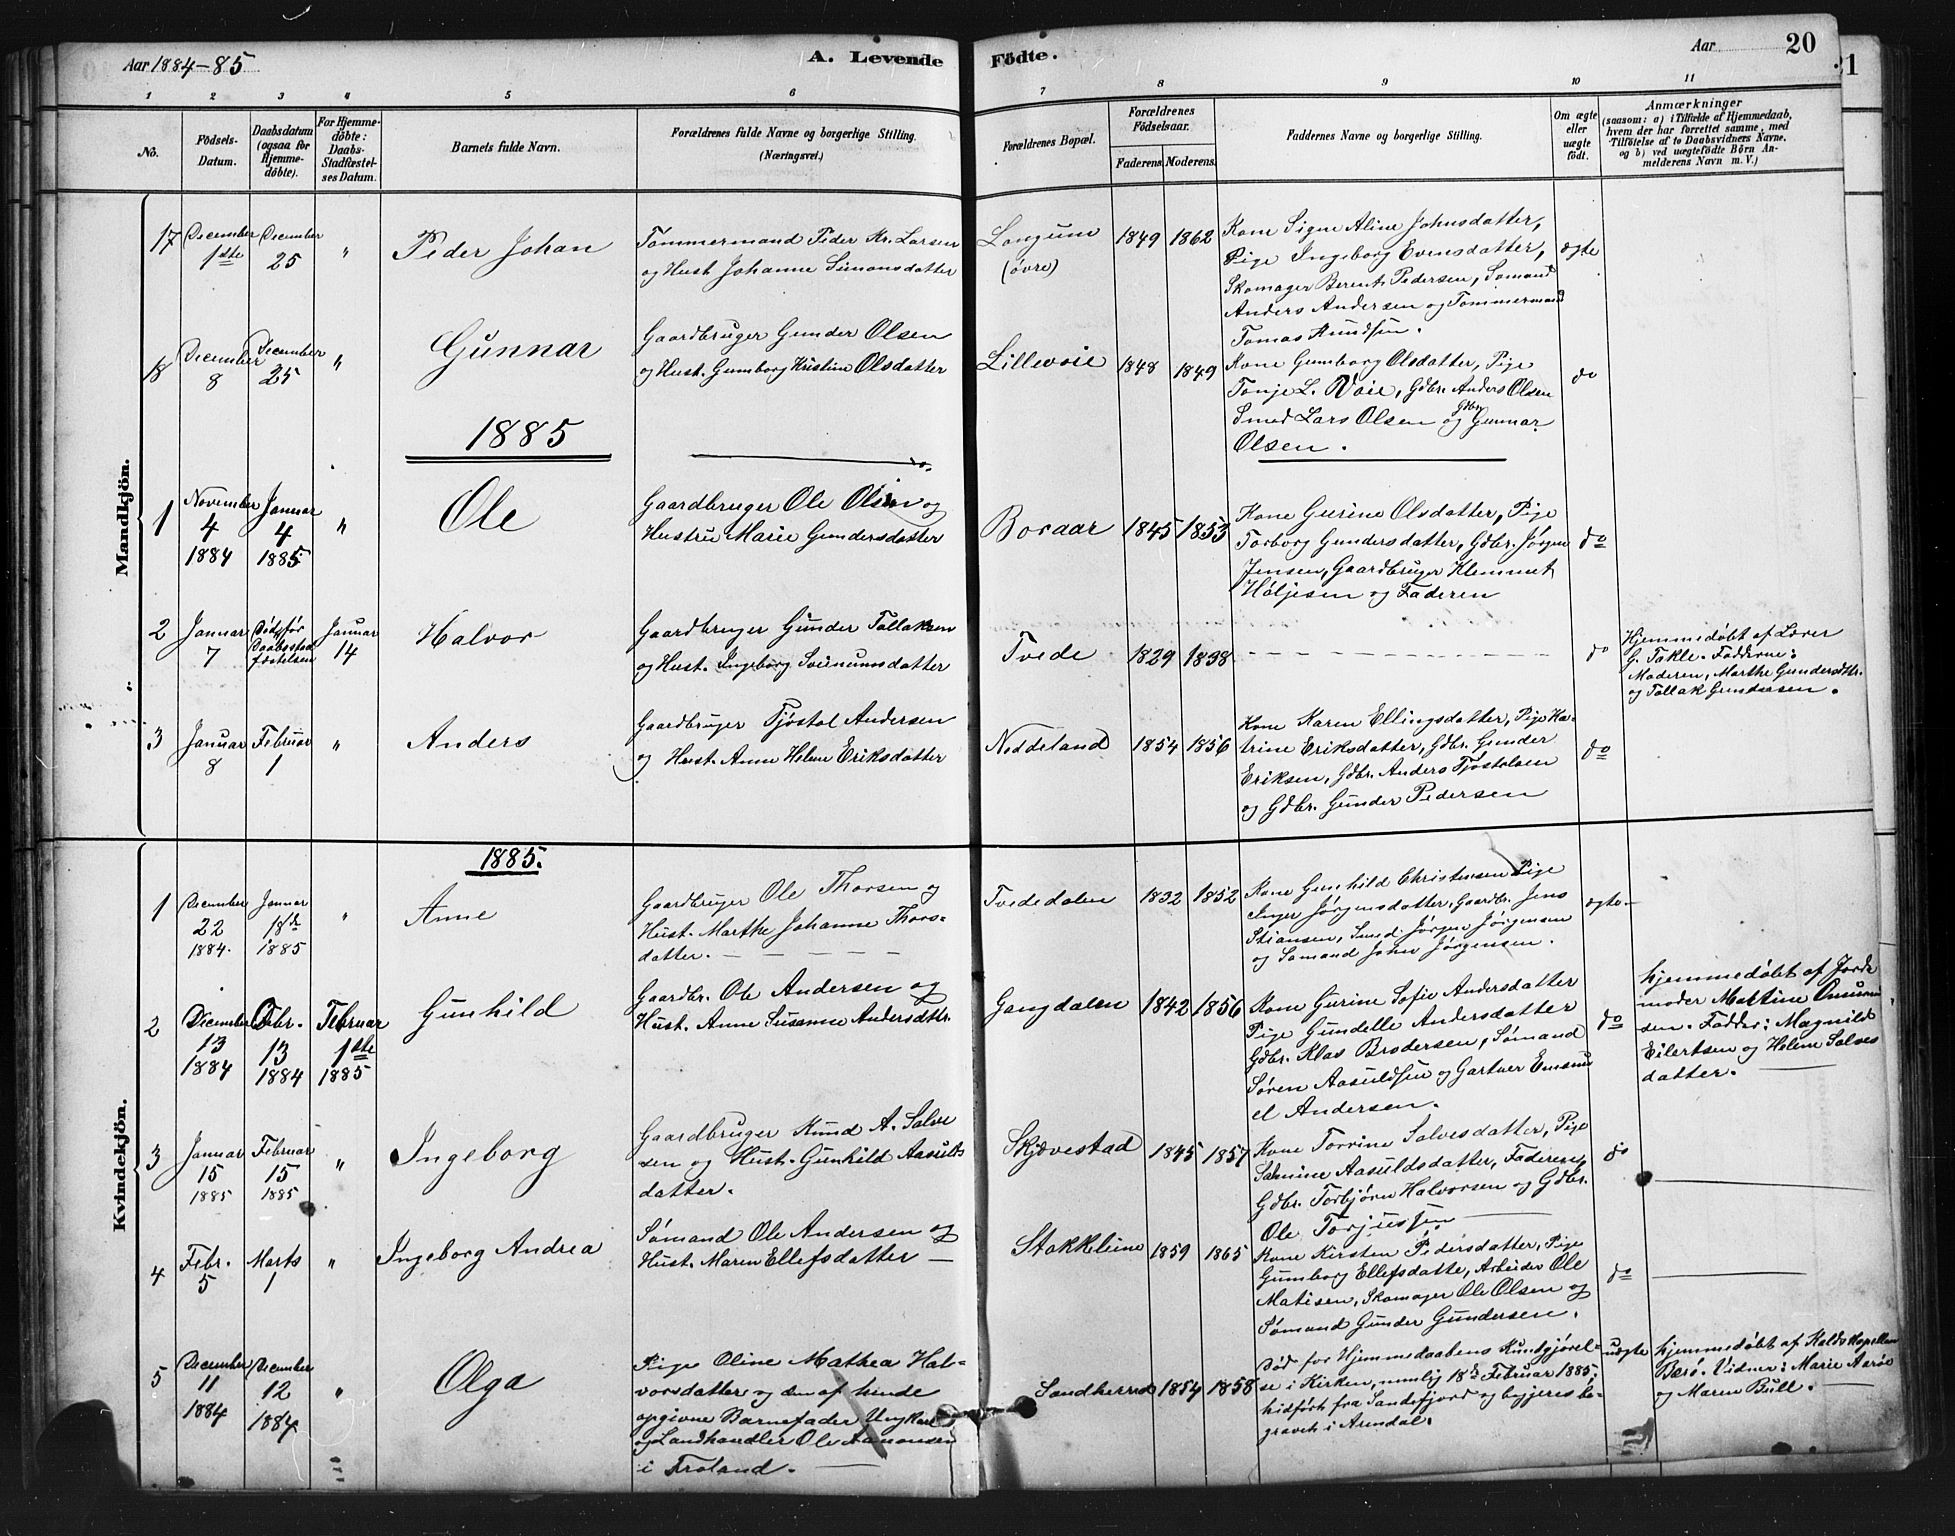 Aar 1884-85
A. Levende
Födte.
Aar
20
21
1 2 3 4 5 6 7 8 9 10 11
No.
Födsels-
Datum.
Daabsdatum
(ogsaa for
Hjemme-
döbte).
For Hjemme-
döbte:
Daabs-
Stadfæstel-
ses Datum.
Barnets fulde Navn.
Forældrenes fulde Navne og borgerlige Stilling.
(Næringsvei.)
Forældrenes Bopæl.
Forældrenes
Födselsaar.
Faderens.
Moderens.
Faddernes Navne og borgerlige Stilling.
Om ægte
eller
uægte
födt.
Anmærkninger
(saasom: a) i Tilfælde af Hjemmedaab,
hvem der har forrettet samme, med
Tilföielse af to Daabsvidners Navne,
og b) ved uægtefödte Börn An-
melderens Navn m. V.)
Mandkjön.
17
December
1ste
December
25
"
Peder Johan
Tømmermand Peder Kr. Larsen
og Hust Johanne Simonsdatter
Longum
(øvre)
1849
1862
Kone Signe Aline Johnsdatter,
Pige Ingeborg Evensdatter,
Skomager Berent Pedersen, Sømand
Anders Andersen og Tømmermand
Tomas Knudsen.
ægte
18
December
8
December
25
"
Gunnar
Gaardbruger Gunder Olsen
og Hust. Gumborg Kristine Olsdatter
Lillevoie
1848
1849
Kone Gumborg Olsdatter, Pige
Tonje L. Voie, Gdbr. Anders Olsen
Smed Lars Olsen og Gdbr Gunnar
Olsen.
do
1885
1
November
4
1884
Januar
4
1885
"
Ole
Gaardbruger Ole Olsen og
Hustru Marie Gundersdatter
Boraar
1845
1853
Kone Gurine Olsdatter, Pige
Torborg Gundersdatter, Gdbr. Jørgen
Jensen, Gaardbruger Klemmet
Høljesen og Faderen
do
2
Januar
7
Død før
Daabsstad
fæstelsen
Januar
14
Halvor
Gaardbruger Gunder Tallaksen
og Hust. Ingeborg Sveinumsdatter
Tvede
1829
1838
do
Hjemmedøbt af Lærer
G. Takle. Fadderne:
Moderen, Marthe Gundersdtr.
og Tallak Gundersen.
3
Januar
8
Februar
1
"
Anders
Gaardbruger Tjøstol Andersen
og Hust. Anne Helene Eriksdatter
Neddeland
1854
1856
Kone Karen Ellingsdatter, Pige Ka-
trine Eriksdatter, Gdbr. Gunder
Eriksen, Gdbr. Anders Tjøstolsen
og Gdbr. Gunder Pedersen
do
Kvindekjön.
1885.
1
December
22
1884.
Januar
18de
1885
"
Anne
Gaardbruger Ole Thorsen og
Hust. Marthe Johanne Thors-
datter.
Tvededalen
1832
1852
Kone Gunhild Christensen Pige
Inger Jørgensdatter, Gaardbr. Jens
Stiansen, Smed. Jørgen Jørgensen
og Sømand John Jørgensen.
ægte
2
December
13
1884
Dbr.
13
1884
Februar
1ste
1885
Gunhild
Gaardbr. Ole Andersen og
Hust. Anne Susanne Andersdtr.
Gangdalen
1842
1856
Kone Gurine Sofie Andersdatter
Pige Gundelle Andersdatter
Gdbr. Klas Brodersen, Sømand
Søren Aasuldsen og Gartner Emanu
el Andersen.
do
hjemmedøbt af Jorde
moder Martine Omund
sen. Fadder: Magnild
Eilertsen og Helene Salves
datter.
3
Januar
15
1885
Februar
15
1885
"
Ingeborg
Gaardbruger Knud A. Salve
sen og Hust. Gunhild Aasulds
datter.
Skjævestad
1845
1857
Kone Torrine Salvesdatter, Pige
Salmine Aasuldsdatter, Faderen,
Gdbr. Torbjørn Halvorsen og Gdbr.
Ole Torjussen
do
4
Febr.
5
Marts
1
"
Ingeborg Andrea
Sømand Ole Andersen og
Hust. Maren Ellefsdatter
Stokkelene
1859
1865
Kone Kirsten Pedersdatter, Pige
Gumborg Ellefsdatte, Arbeider Ole
Matisen, Skomager Ole Olsen og
Sømand Gunder Gundersen.
do
5
December
11
1884
December
12
1884
"
Olga
Pige Oline Mathea Hal-
vorsdatter og den af hende
opgivne Barnefader Ungkarl
og Landhandler Ole Aanonsen
i Froland.
Sandherred
1854
1858
Død før Hjemmedaabens Kundgjørel-
se i Kirken, nemlig 18de Februar 1885;
hidført fra Sandefjord og begjæres be-
gravet i Arendal.
uægte
hjemmedøbt af Kaldskapellan
Barø. Vidner: Marie Aarøe
og Maren Bull.